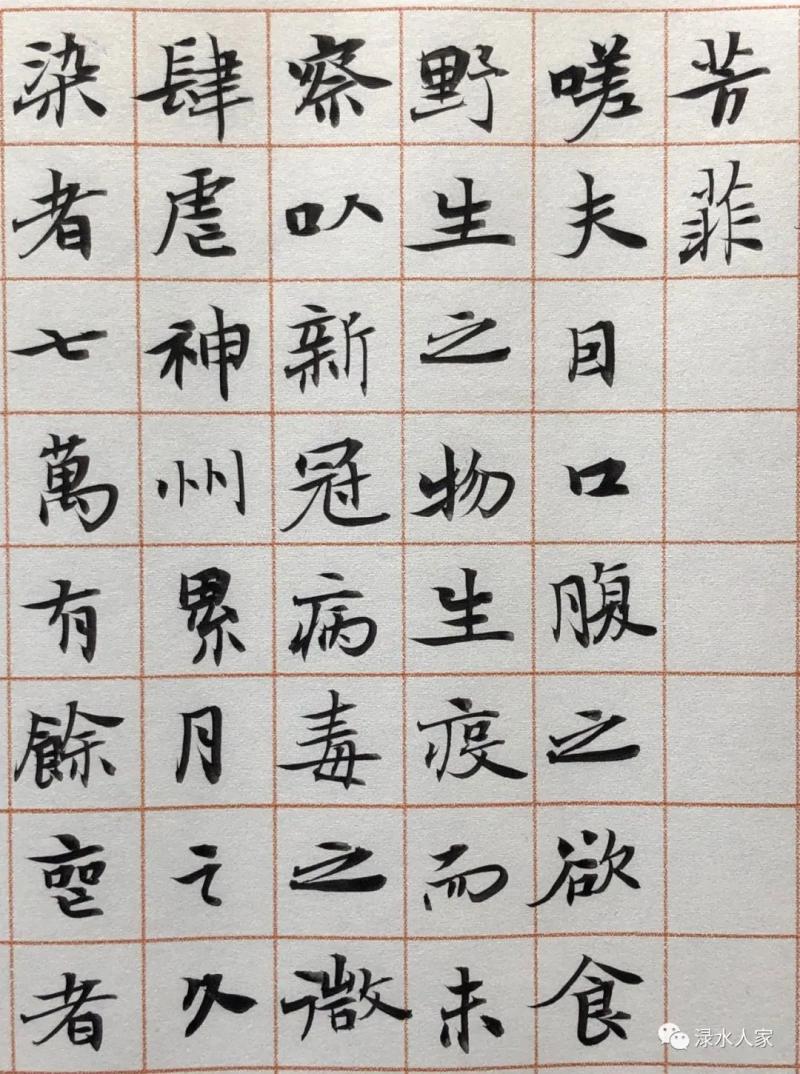 芳菲
嗟夫因口腹之欲食
野生之物生疫而未
察以新冠病毒之微
肆虐神州累月之久
染者七萬有餘者
渌水人家